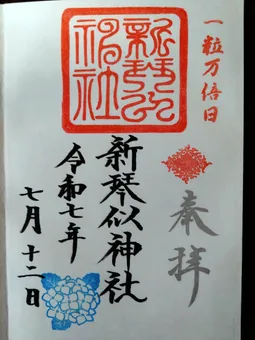 一粒万倍日
奉拝
新琴似神社
令和七年
七月十二日
新琴似
神社